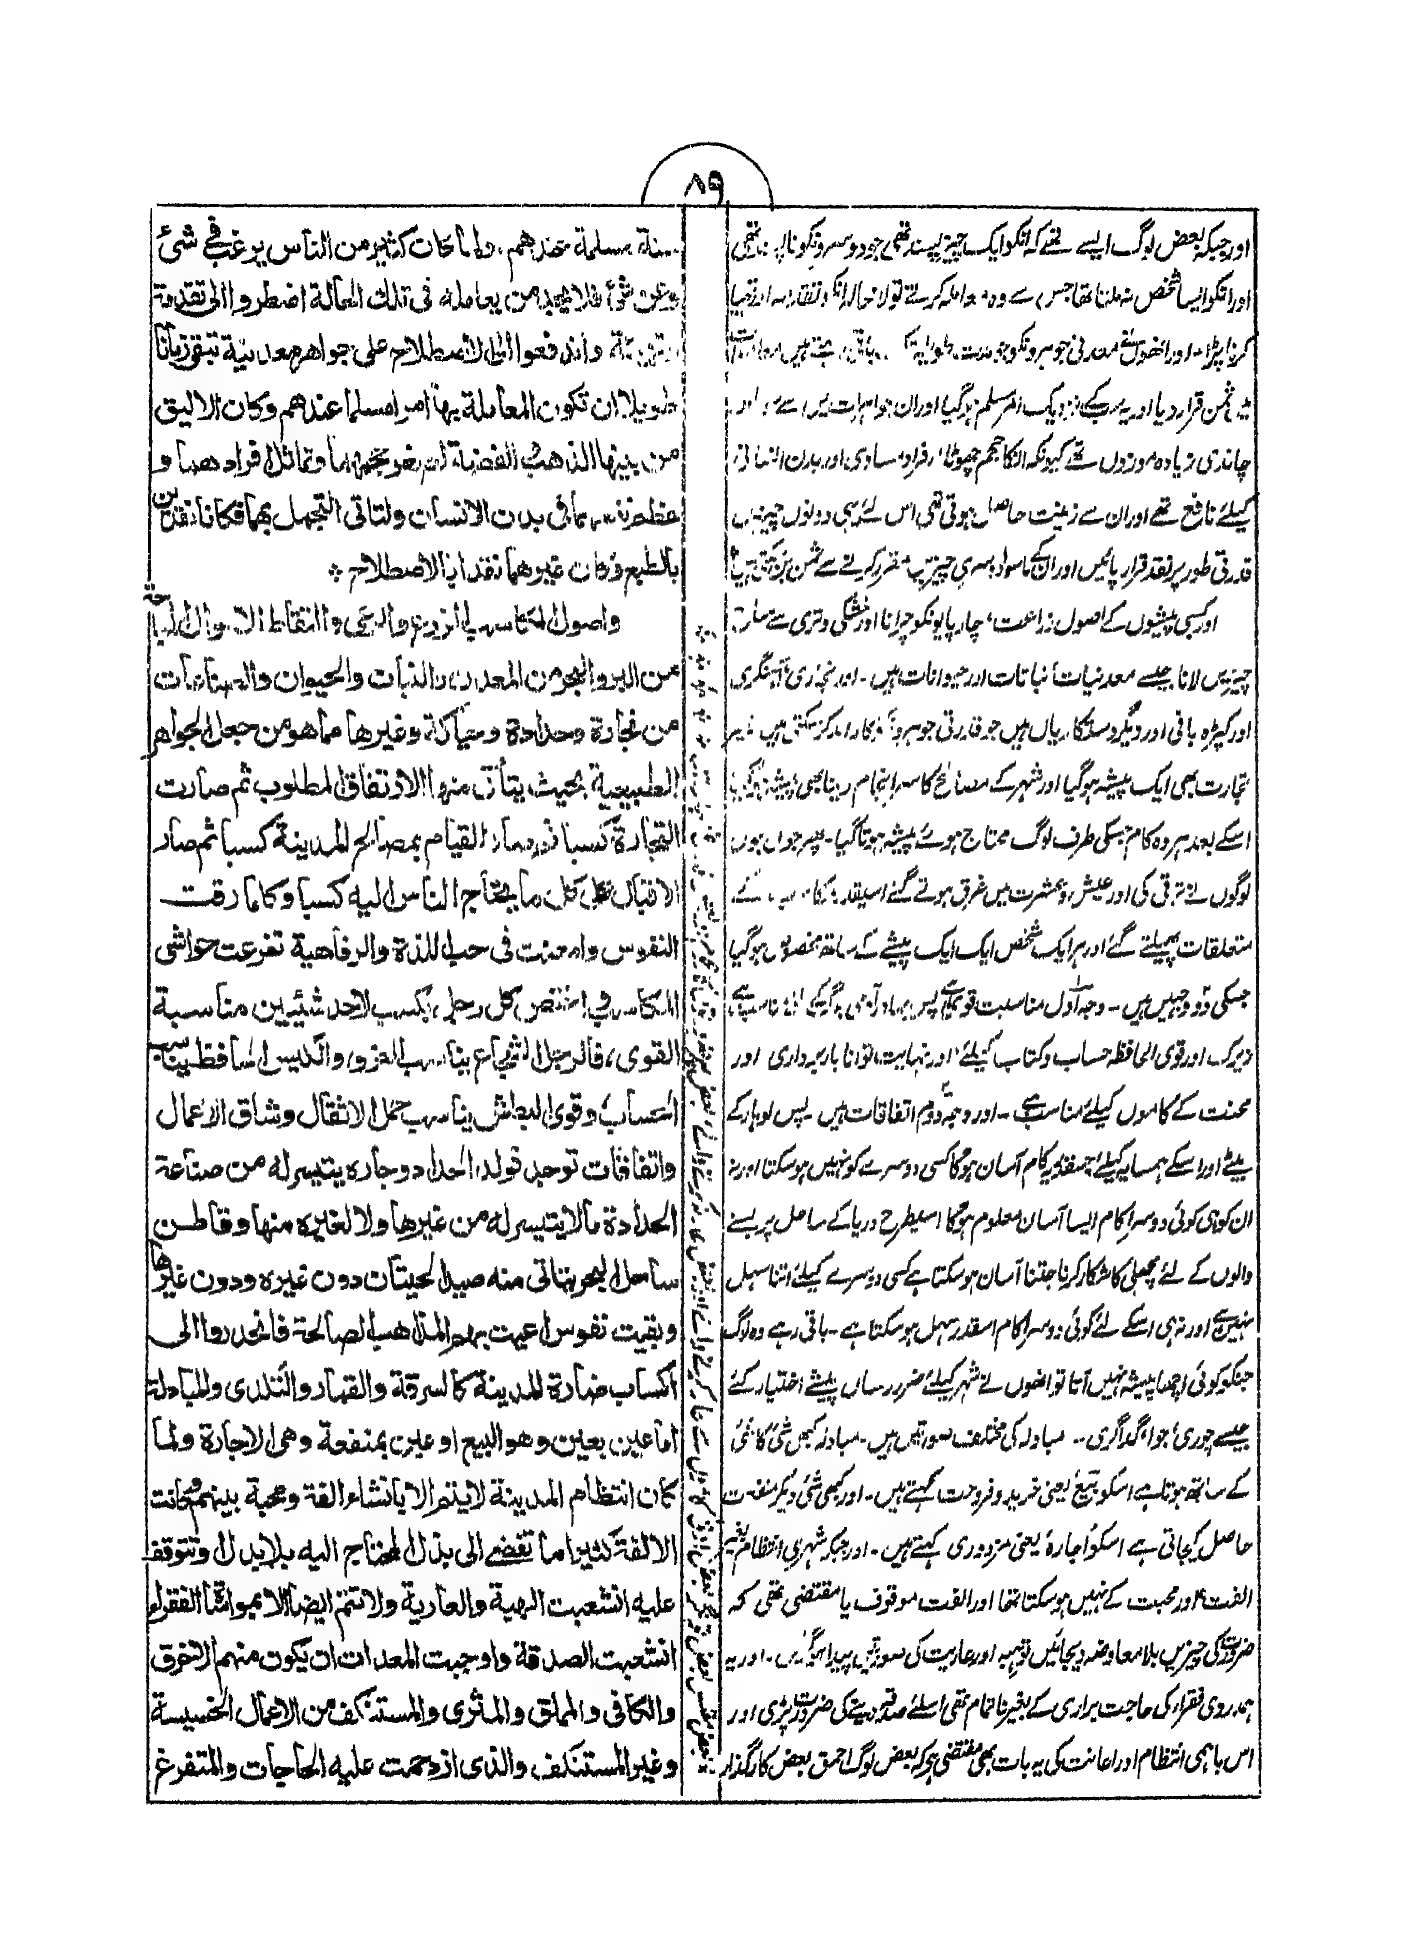 ٨٩
اور جبکہ بعض لوگ ایسے تھے کہ انکو ایک چیز پسند تھی جو دوسرونکو ناپسند تھی
اور انکو ایسا شخص نہ ملتا تھا جس سے وہ معاملہ کرتے تو لامحالہ انکو تقدمہ اور تہیا
کرنا پڑا۔ اور انھوں نے معدنی جوہرونکو جو مدت طویلہ تک باقی رہتے ہیں معاملات
میں ثمن قرار دیا اور یہ سب کے نزدیک امر مسلم ہو گیا اور ان جواہرات میں سے سونا اور
چاندی زیادہ موزوں تھے کیونکہ انکا حجم چھوٹا، افراد مساوی اور بدن انسانی
کیلئے نافع تھے اور ان سے زینت حاصل ہوتی تھی اس لئے یہی دونوں چیزیں
قدرتی طور پر نقد قرار پائیں اور ان کے ماسوا دوسری چیزیں مقرر کر لینے سے ثمن بن سکتی ہیں
اور کسبی پیشوں کے اصول زراعت، چارپایونکو چرانا اور خشکی و تری سے مباح
چیزیں لانا جیسے معدنیات، نباتات اور حیوانات ہیں۔ اور نجاری، آہنگری
اور کپڑہ بافی اور دیگر دستکاریاں ہیں جو قدرتی جوہرونکو بکار آمد کر سکتی ہیں پھر
تجارت بھی ایک پیشہ ہو گیا اور شہر کے مصالح کا سر انجام دینا بھی پیشہ ہو گیا
اسکے بعد ہر وہ کام جسکی طرف لوگ محتاج ہوئے پیشہ ہوتا گیا۔ پھر جوں جوں
لوگوں نے ترقی کی اور عیش و عشرت میں غرق ہوتے گئے اسیقدر کے
متعلقات پھیلتے گئے اور ہر ایک شخص ایک ایک پیشے کے ساتھ مخصوص ہو گیا
جسکی دو وجہیں ہیں۔ وجہ اول مناسبت قویٰ ہے پس بہادر آدمی جنگ کے لئے مناسب ہے
زیرک اور قوی الحافظہ حساب و کتاب کیلئے، اور نہایت توانا باربرداری اور
محنت کے کاموں کیلئے مناسب ہے۔ اور وجہ دوم اتفاقات ہیں۔ پس لوہار کے
بیٹے اور اسکے ہمسایہ کیلئے جسقدر یہ کام آسان ہوگا کسی دوسرے کو نہیں ہو سکتا اور نہ
ان کو ہی کوئی دوسرا کام ایسا آسان معلوم ہوگا اسیطرح دریا کے ساحل پر بسنے
والوں کے لئے مچھلی کا شکار کرنا جتنا آسان ہو سکتا ہے کسی دوسرے کیلئے اتنا سہل
نہیں ہے اور نہ ہی اسکے لئے کوئی دوسرا کام اسقدر سہل ہو سکتا ہے۔ باقی رہے وہ لوگ
جنکو کوئی اچھا پیشہ نہیں آتا تو انھوں نے شہر کیلئے ضرر رساں پیشے اختیار کئے
جیسے چوری، جوا، گداگری۔ مبادلہ کی مختلف صورتیں ہیں۔ مبادلہ کبھی شئ کا شئ
کے ساتھ ہوتا ہے اسکو بیع یعنی خرید و فروخت کہتے ہیں۔ اور کبھی شئ دیکر منفعت
حاصل کیجاتی ہے اسکو اجارہ یعنی مزدوری کہتے ہیں۔ اور جبکہ شہری انتظام بغیر
الفت اور محبت کے نہیں ہو سکتا تھا اور الفت موقوف یا مقتضی تھی کہ
ضرورت کی چیزیں بلا معاوضہ دیجائیں تو ہبہ اور عاریت کی صورتیں پیدا ہوگئیں۔ اور یہ
ہمدردی فقراء کی حاجت براری کے بغیر ناتمام تھی اسلئے صدقہ دینے کی ضرورت پڑی اور
اس باہمی انتظام اور اعانت کی یہ بات بھی مقتضی ہے کہ بعض لوگ احمق بعض کارگذار
بعض مفلس بعض تونگر بعض
سنة مسلمة عندهم، ولما كان كثير من الناس يرغب في شئ
وعن شئ فلا يجد من يعامله في تلك الحالة اضطروا الى تقدمة
وتهيئة واندفعوا الى الاصطلاح على جواهر معدنية تبقى زمانا
طويلا ان تكون المعاملة بها امرا مسلما عندهم وكان الاليق
من بينها الذهب والفضة لصغر حجمهما وتماثل افرادهما و
عظم نفعهما في بدن الانسان ولتأتي التجمل بهما فكانا نقدين
بالطبع وكان غيرهما نقدا بالاصطلاح
واصول المكاسب الزرع والرعي والتقاط الاموال المباحة
من البر والبحر من المعدن والنبات والحيوان والصناعات
من نجارة وحدادة وحياكة وغيرها مما هو من جعل الجواهر
الطبيعية بحيث يتأتى منها الارتفاق المطلوب ثم صارت
التجارة كسبا ثم صار القيام بمصالح المدينة كسبا ثم صار
الاقبال على كل ما يحتاج الناس اليه كسبا وكلما رقت
النفوس وامعنت في حب اللذة والرفاهية تفرعت حواشي
المكاسب واختص كل رجل بكسب لاحد شيئين مناسبة
القوى، فالرجل الشجاع يناسب الغزو، والكيس الحافظ يناسب
الحساب، وقوي البطش يناسب حمل الاثقال وشاق الاعمال
واتفاقات توجد فولد الحداد وجاره يتيسر له من صناعة
الحدادة ما لا يتيسر له من غيرها ولا لغيره منها وقاطن
ساحل البحر يتأتى منه صيد الحيتان دون غيره ودون غيرها
وبقيت نفوس اعيت بهم المذاهب الصالحة فانحدروا الى
اكساب ضارة للمدينة كالسرقة والقمار والتكدي والمبادلة
اما عين بعين وهو البيع او عين بمنفعة وهي الاجارة ولما
كان انتظام المدينة لا يتم الا بانشاء الفة ومحبة بينهم وكانت
الالفة كثيرا ما تفضي الى بذل المحتاج اليه بلا بدل وتتوقف
عليه انشعبت الهبة والعارية ولا تتم ايضا الا بمواساة الفقراء
انشعبت الصدقة واوجبت المعدات ان يكون منهم الاخرق
والكافي والمملق والمثري والمستنكف من الاعمال الخسيسة
وغير المستنكف والذي ازدحمت عليه الحاجات والمتفرغ